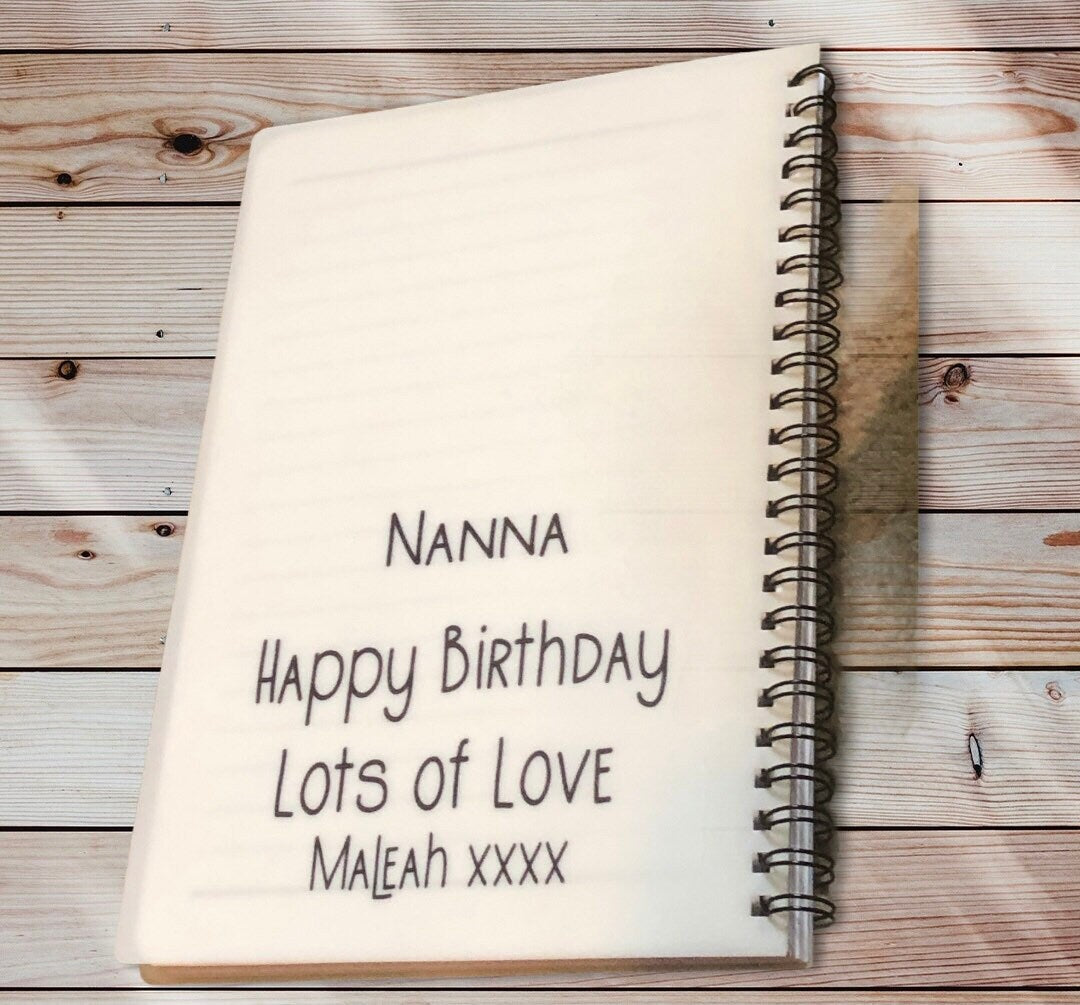 Nanna
Happy Birthday
Lots of Love
Maleah xxxx